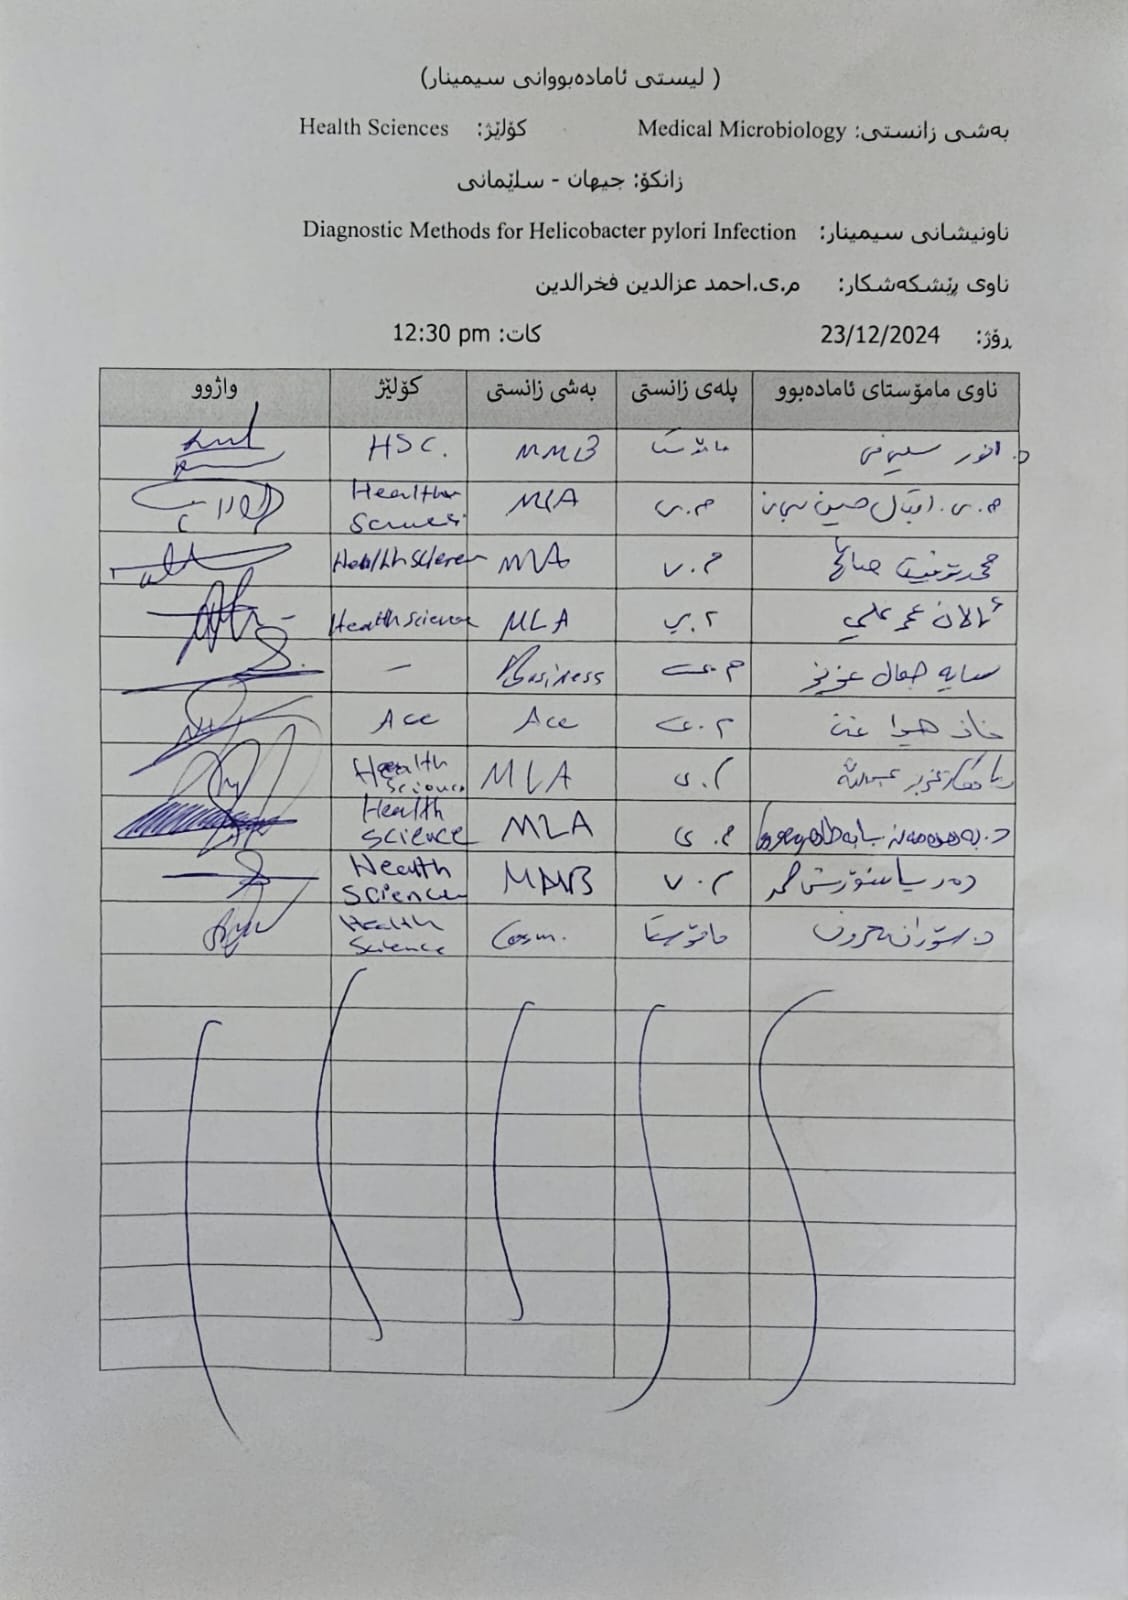 ( لیستی ئامادەبووانی سیمینار)
بەشی زانستی: Medical Microbiology کۆلێژ: Health Sciences
زانکۆ: جیهان - سلێمانی
ناونیشانی سیمینار: Diagnostic Methods for Helicobacter pylori Infection
ناوی پێشکەشکار: م.ی.احمد عزالدین فخرالدین
ڕۆژ: 23/12/2024 کات: 12:30 pm
ناوی مامۆستای ئامادەبوو پلەی زانستی بەشی زانستی کۆلێژ واژوو
د. انور مامۆستا MMB HSC.
م.ی. اقبال حسین م.ی MLA Health Sciences
صالح م.ی MLA Health Science
ئالان عمر علي م.ی MLA Health science
سایە جمال عزیز م.ی Business –
هیوا م.ی Ace Ace
عزیز عبدالله م.ی MLA Health Science
د. م.ی MLA Health Science
م.ی MMB Health Science
د. مامۆستا Cosm. Health Science